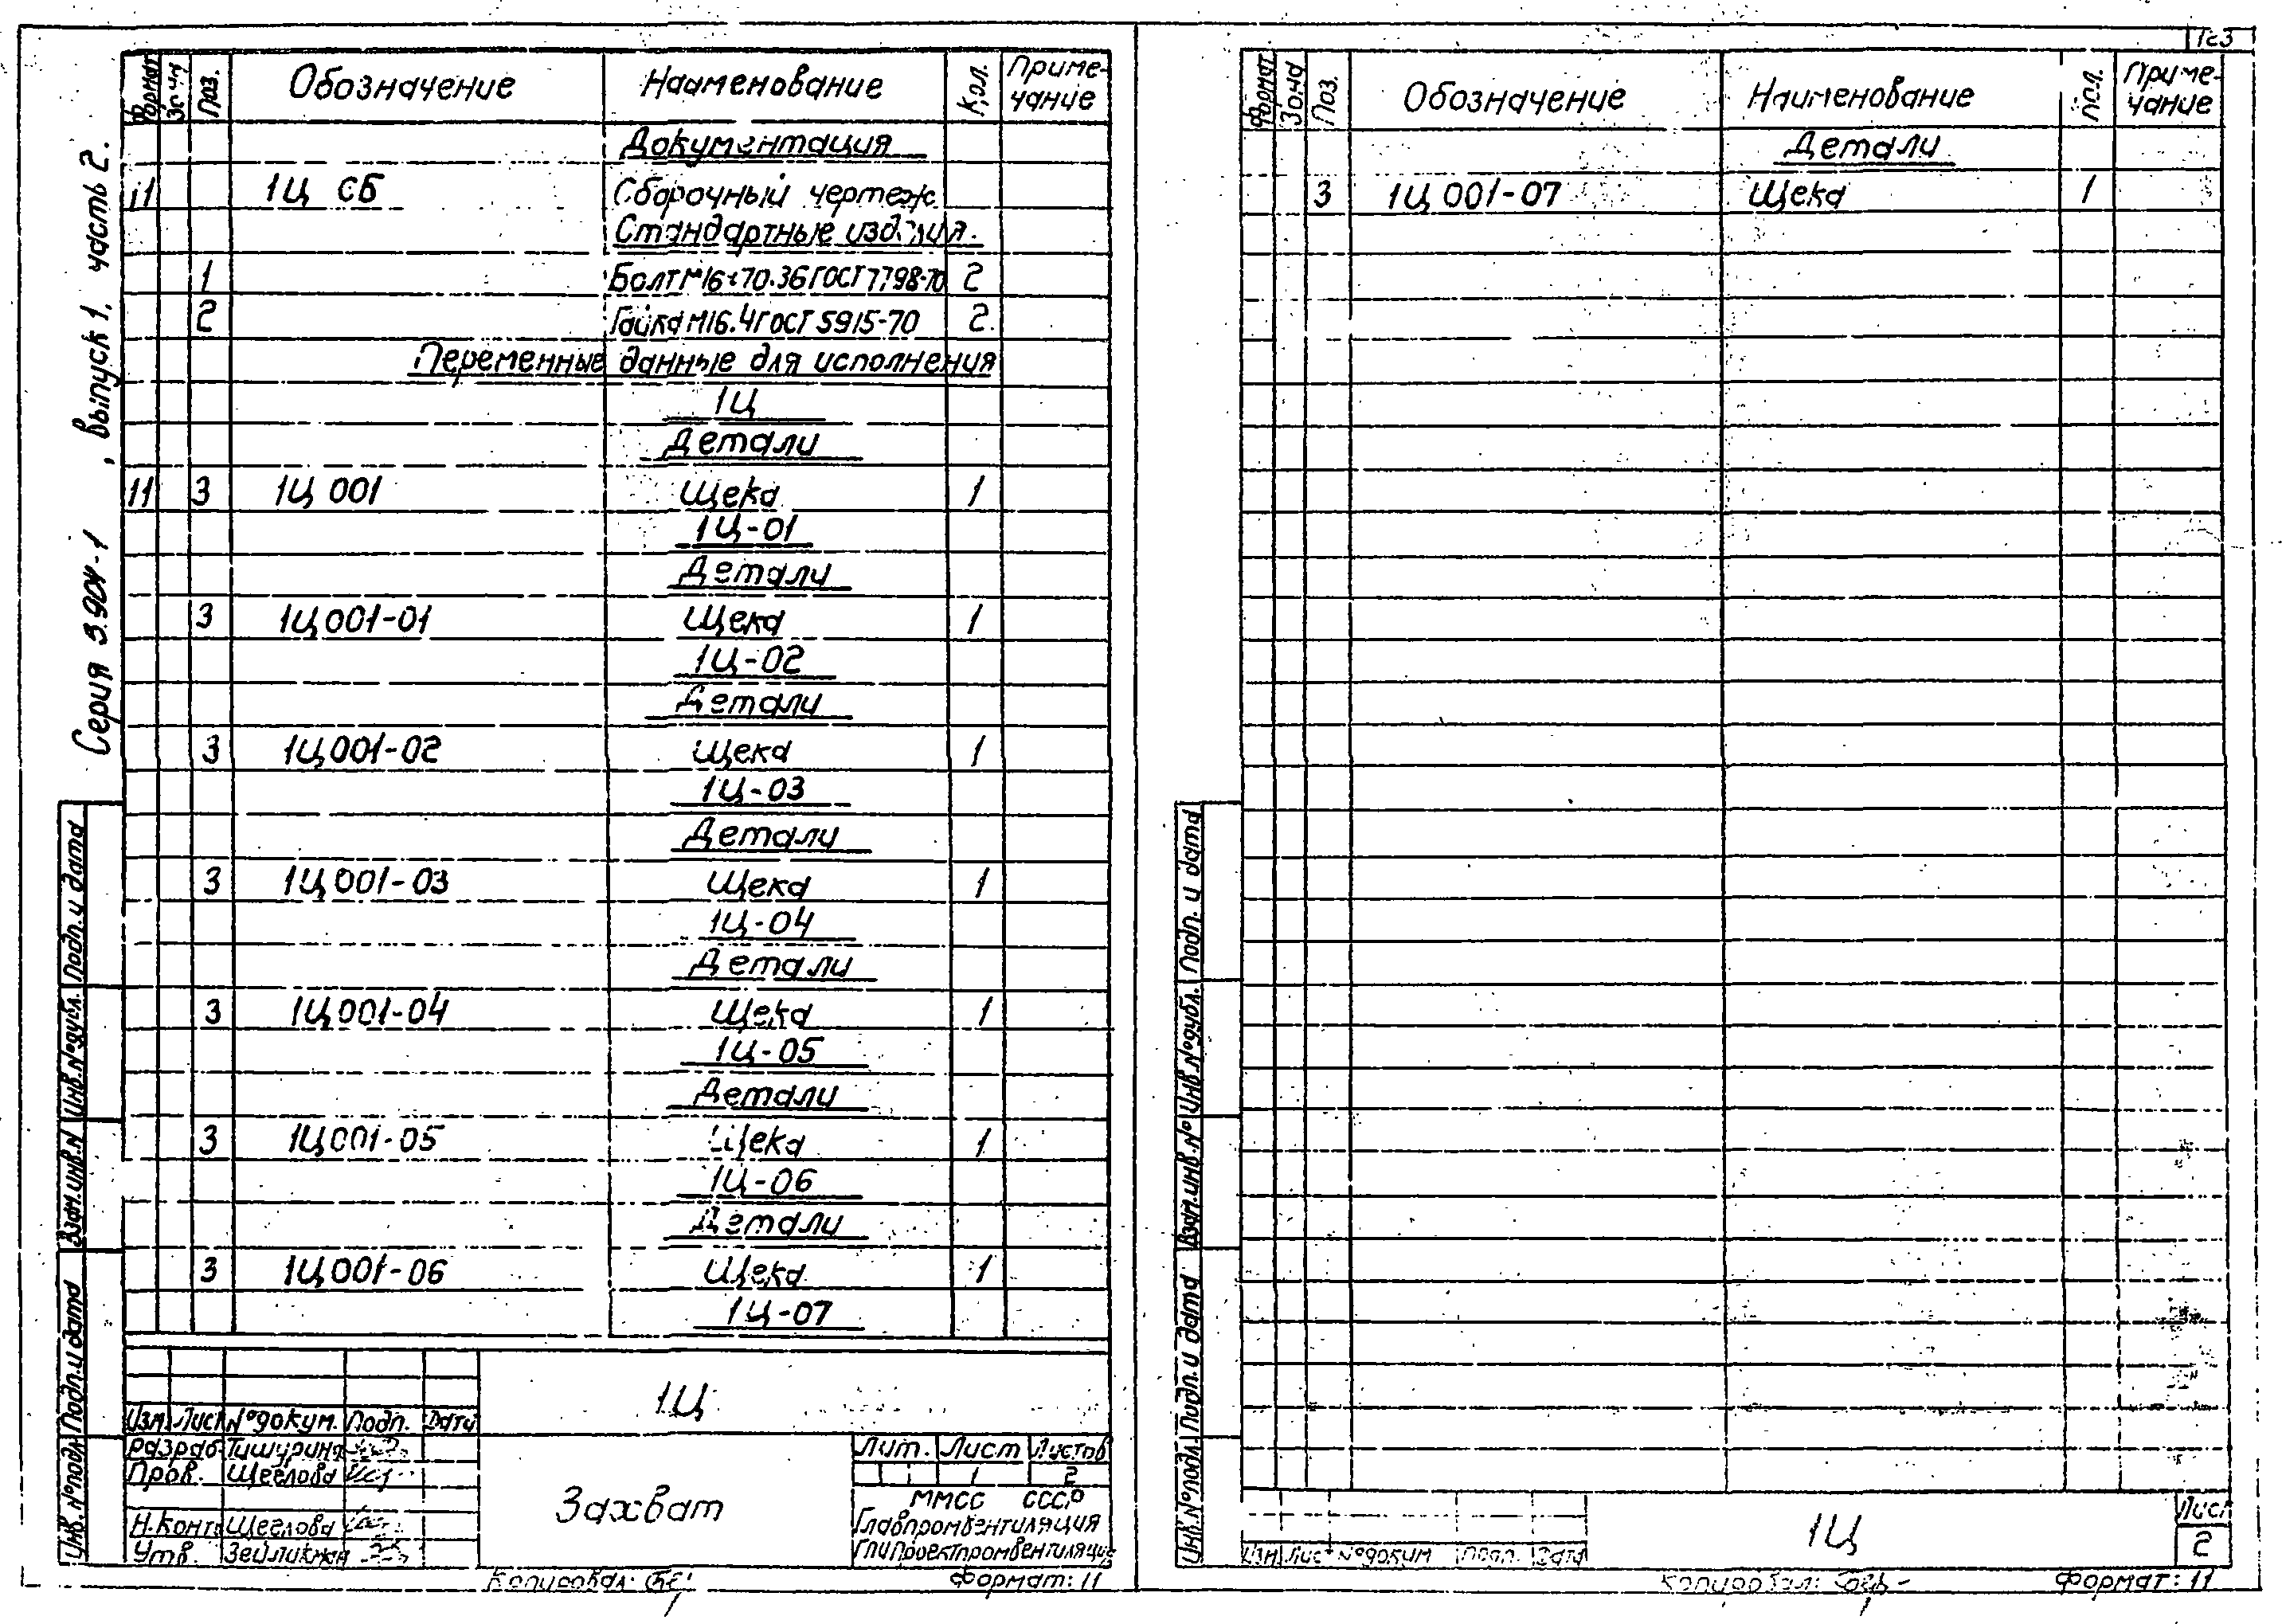 Серия 3.904-1 , выпуск 1, часть 2.
Формат Зона Поз. Обозначение Наименование Кол. Приме-
чание
Документация
11 1Ц СБ Сборочный чертеж
Стандартные изделия.
1 Болт М16×70.36 ГОСТ 7798-70 2
2 Гайка М16.4 ГОСТ 5915-70 2.
Переменные данные для исполнения
1Ц
Детали
11 3 1Ц 001 Щека 1
1Ц-01
Детали
3 1Ц001-01 Щека 1
1Ц-02
Детали
3 1Ц001-02 Щека 1
1Ц-03
Детали
3 1Ц001-03 Щека 1
1Ц-04
Детали
3 1Ц001-04 Щека 1
1Ц-05
Детали
3 1Ц001-05 Щека 1
1Ц-06
Детали
3 1Ц001-06 Щека 1
1Ц-07
Подп. и дата
Инв.№дубл.
Взам.инв.№
Подп. и дата
Инв.№подл.
1Ц
Изм. Лист №докум. Подп. Дата
Разраб. Тишурина
Пров. Щеглова
Н.Контр Щеглова
Утв.
Захват
Лит. Лист Листов
1 2
ММСС СССР
Главпромвентиляция
ГПИ Проектпромвентиляция
Копировал:
Формат: 11
Формат Зона Поз. Обозначение Наименование Кол. Приме-
чание
Детали
3 1Ц 001-07 Щека 1
Подп. и дата
Инв.№дубл.
Взам.инв.№
Подп. и дата
Инв.№подл.
Изм Лист №докум Подп. Дата
1Ц
Лист
2
Копировал:
Формат: 11